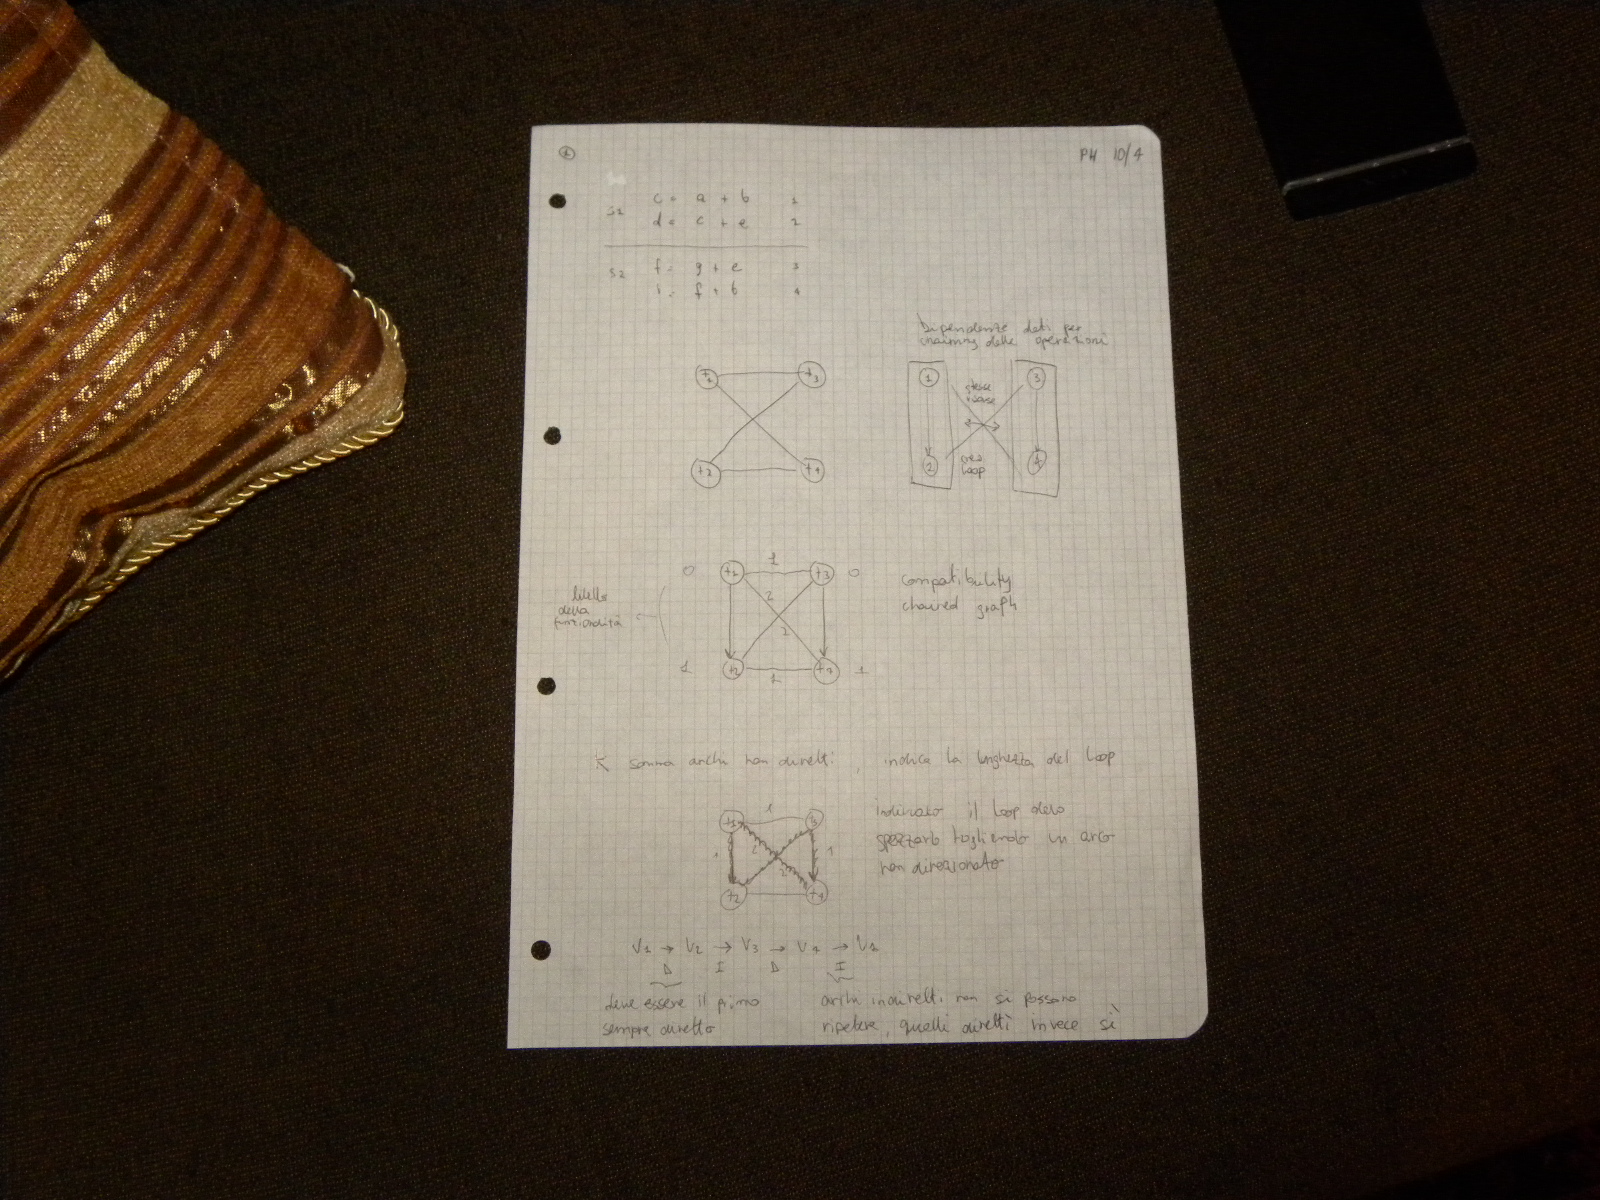 1
PH 10/4
S1 c = a + b 1
d = c + e 2
S2 f = g + e 3
i = f + b 4
Dipendenze dati per
chaining delle operazioni
+1 +3
+2 +4
1 3
stesse
risorse
crea
loop
2 4
0 +1 1 +3 0
2
2
1 +2 1 +4 1
livello
della
funzionalità
compatibility
chained graph
K somma archi non diretti, indica la lunghezza del loop
+1 1 3
1 2 2 1
+2 +4
indicato il loop devo
spezzarlo togliendo un arco
non direzionato
V1 → V2 → V3 → V4 → V1
D I D I
deve essere il primo
sempre diretto
archi indiretti non si possono
ripetere, quelli diretti invece sì